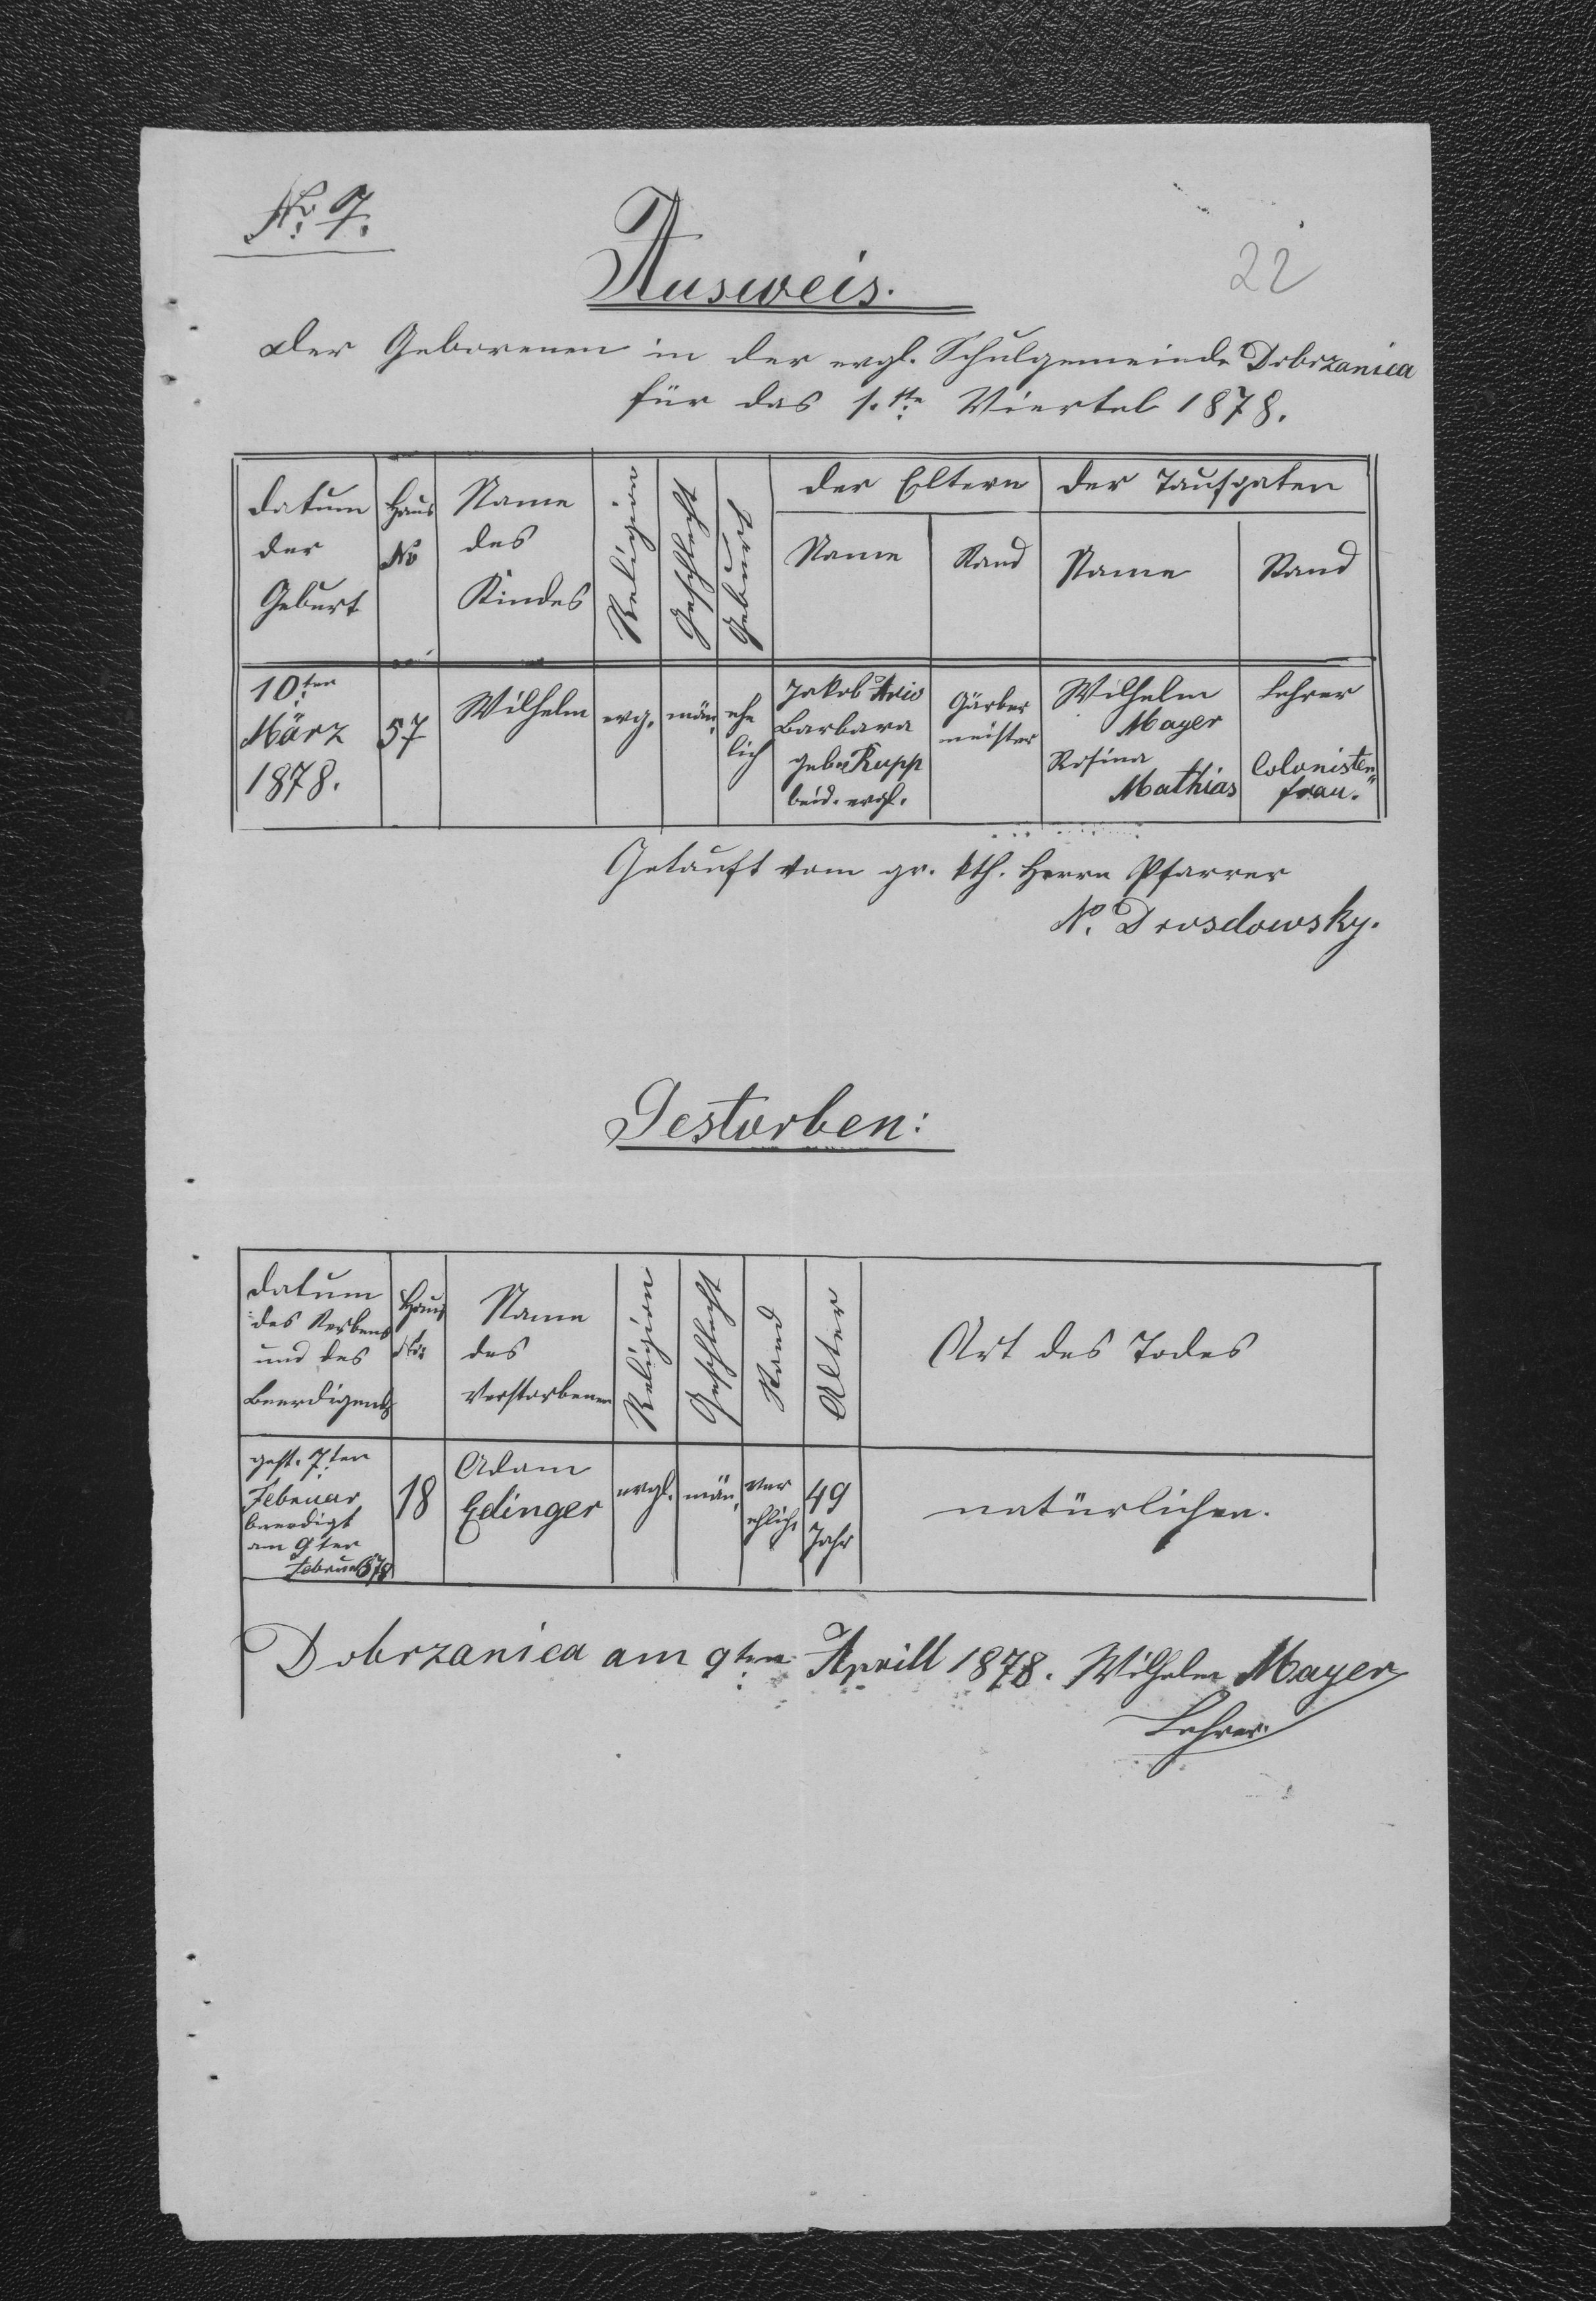 No. 7.
22
Ausweis.
der Geborenen in der evgl. Schulgemeinde Dobrzanica
für das 1.te Viertel 1878.
Datum der Geburt
Haus No
Name des Kindes
Religion
Geschlecht
Geburt
der Eltern
Name
Stand
der Taufpaten
Name
Stand
10ten März 1878.
57
Wilhelm
evg.
män.
ehelich
Jakob
Barbara
geb. Rupp
beid. evgl.
Gärber meister
Wilhelm Mayer
Lehrer
Rosina Mathias
Colonisten frau.
Getauft vom gr. kth. Herrn Pfarrer
N. Drosdowsky.
Gestorben:
Datum des Sterbens und des Beerdigens
Haus No.
Name des Verstorbenen
Religion
Geschlecht
Stand
Alter
Art des Todes
gest. 7ten Februar
beerdigt am 9ten Februar 878
18
Adam Edinger
evgl.
män.
verehlich.
49 Jahr
natürlichen.
Dobrzanica am 9ten Aprill 1878. Wilhelm Mayer
Lehrer.